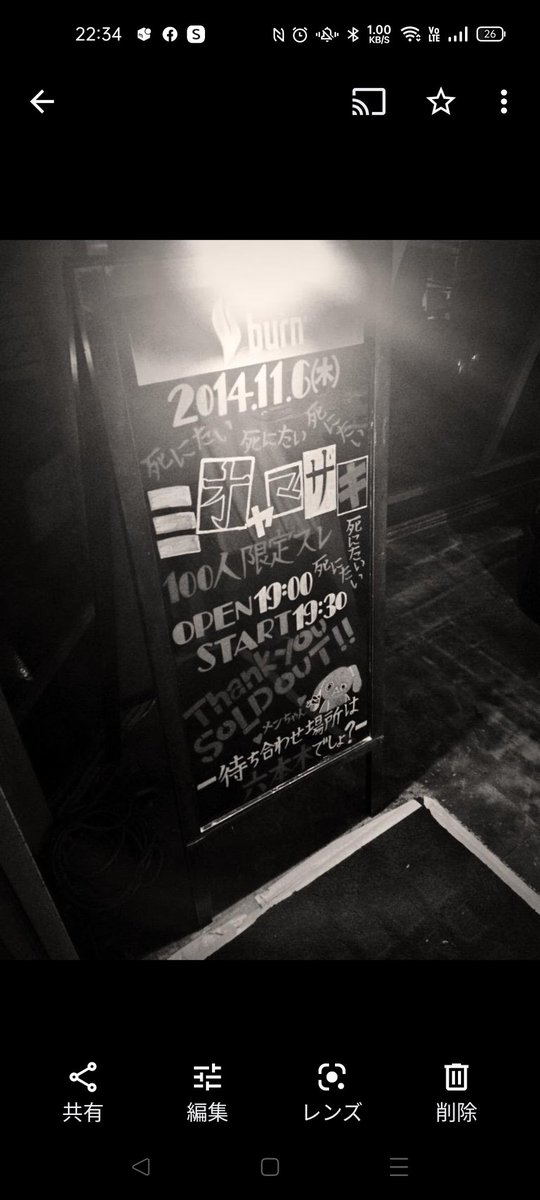 22:34
1.00 KB/S
Vo LTE
26
burn
2014.11.6(木)
死にたい 死にたい 死にたい
ミオヤマザキ
死にたいい
100人限定スレ
死にたい
OPEN19:00
START19:30
Thank you
SOLDOUT!!
メンちゃん
ー待ち合わせ場所は
六本木でしょ?ー
共有
編集
レンズ
削除